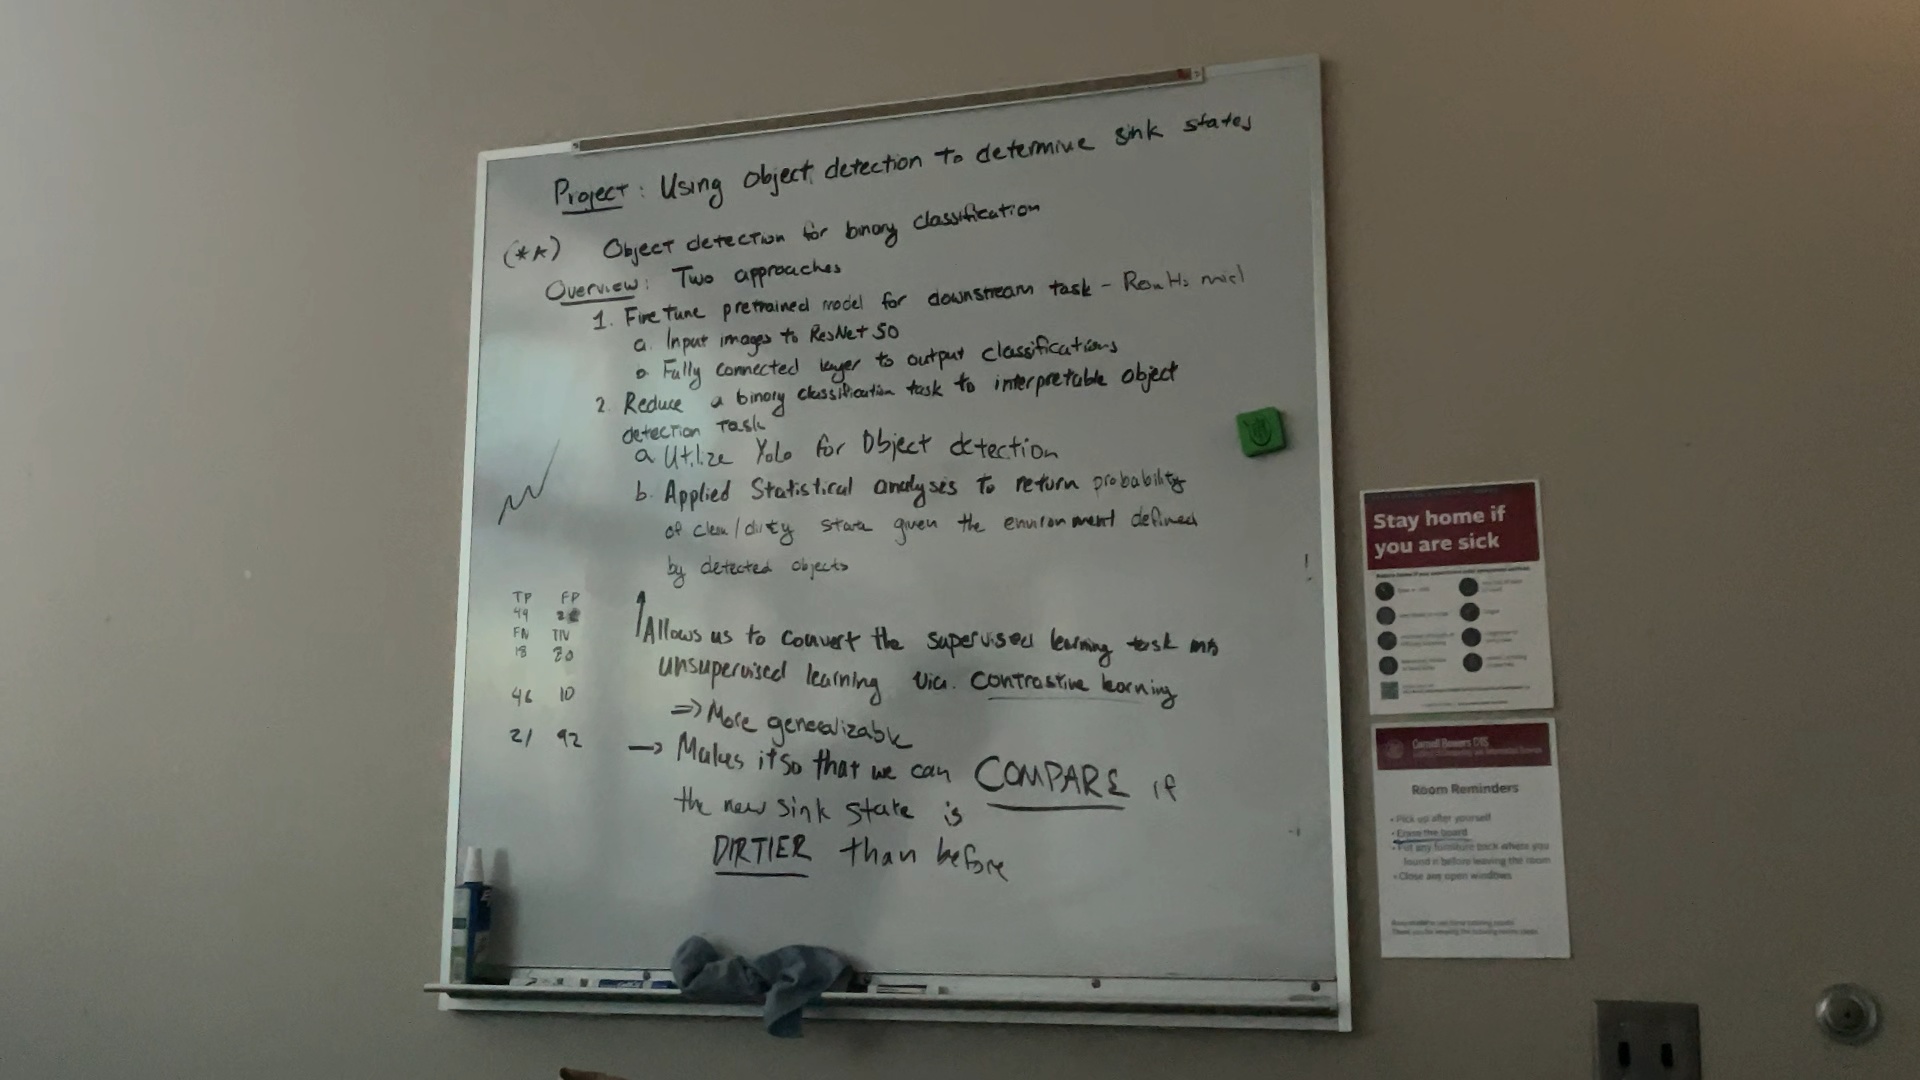 Project: Using Object detection to determine sink states
(**) Object detection for binary classification
Overview: Two approaches
1. Fine tune pretrained model for downstream task -
a. Input images to ResNet 50
o Fully connected layer to output classifications
2. Reduce a binary classification task to interpretable object
detection task
a Utilize Yolo for Object detection
b. Applied Statistical analysis to return probability
of clean/dirty state given the environment defined
by detected objects
TP FP
49
FN TN
18 80
46 10
21 92
Allows us to convert the supervised learning task into
unsupervised learning via. Contrastive learning
=> More generalizable
→ Makes it so that we can COMPARE if
the new sink state is
DIRTIER than before
Stay home if
you are sick
Cornell Bowers CIS
Room Reminders
• Pick up after yourself
• Erase the board
• Put any furniture back where you
found it before leaving the room
• Close any open windows